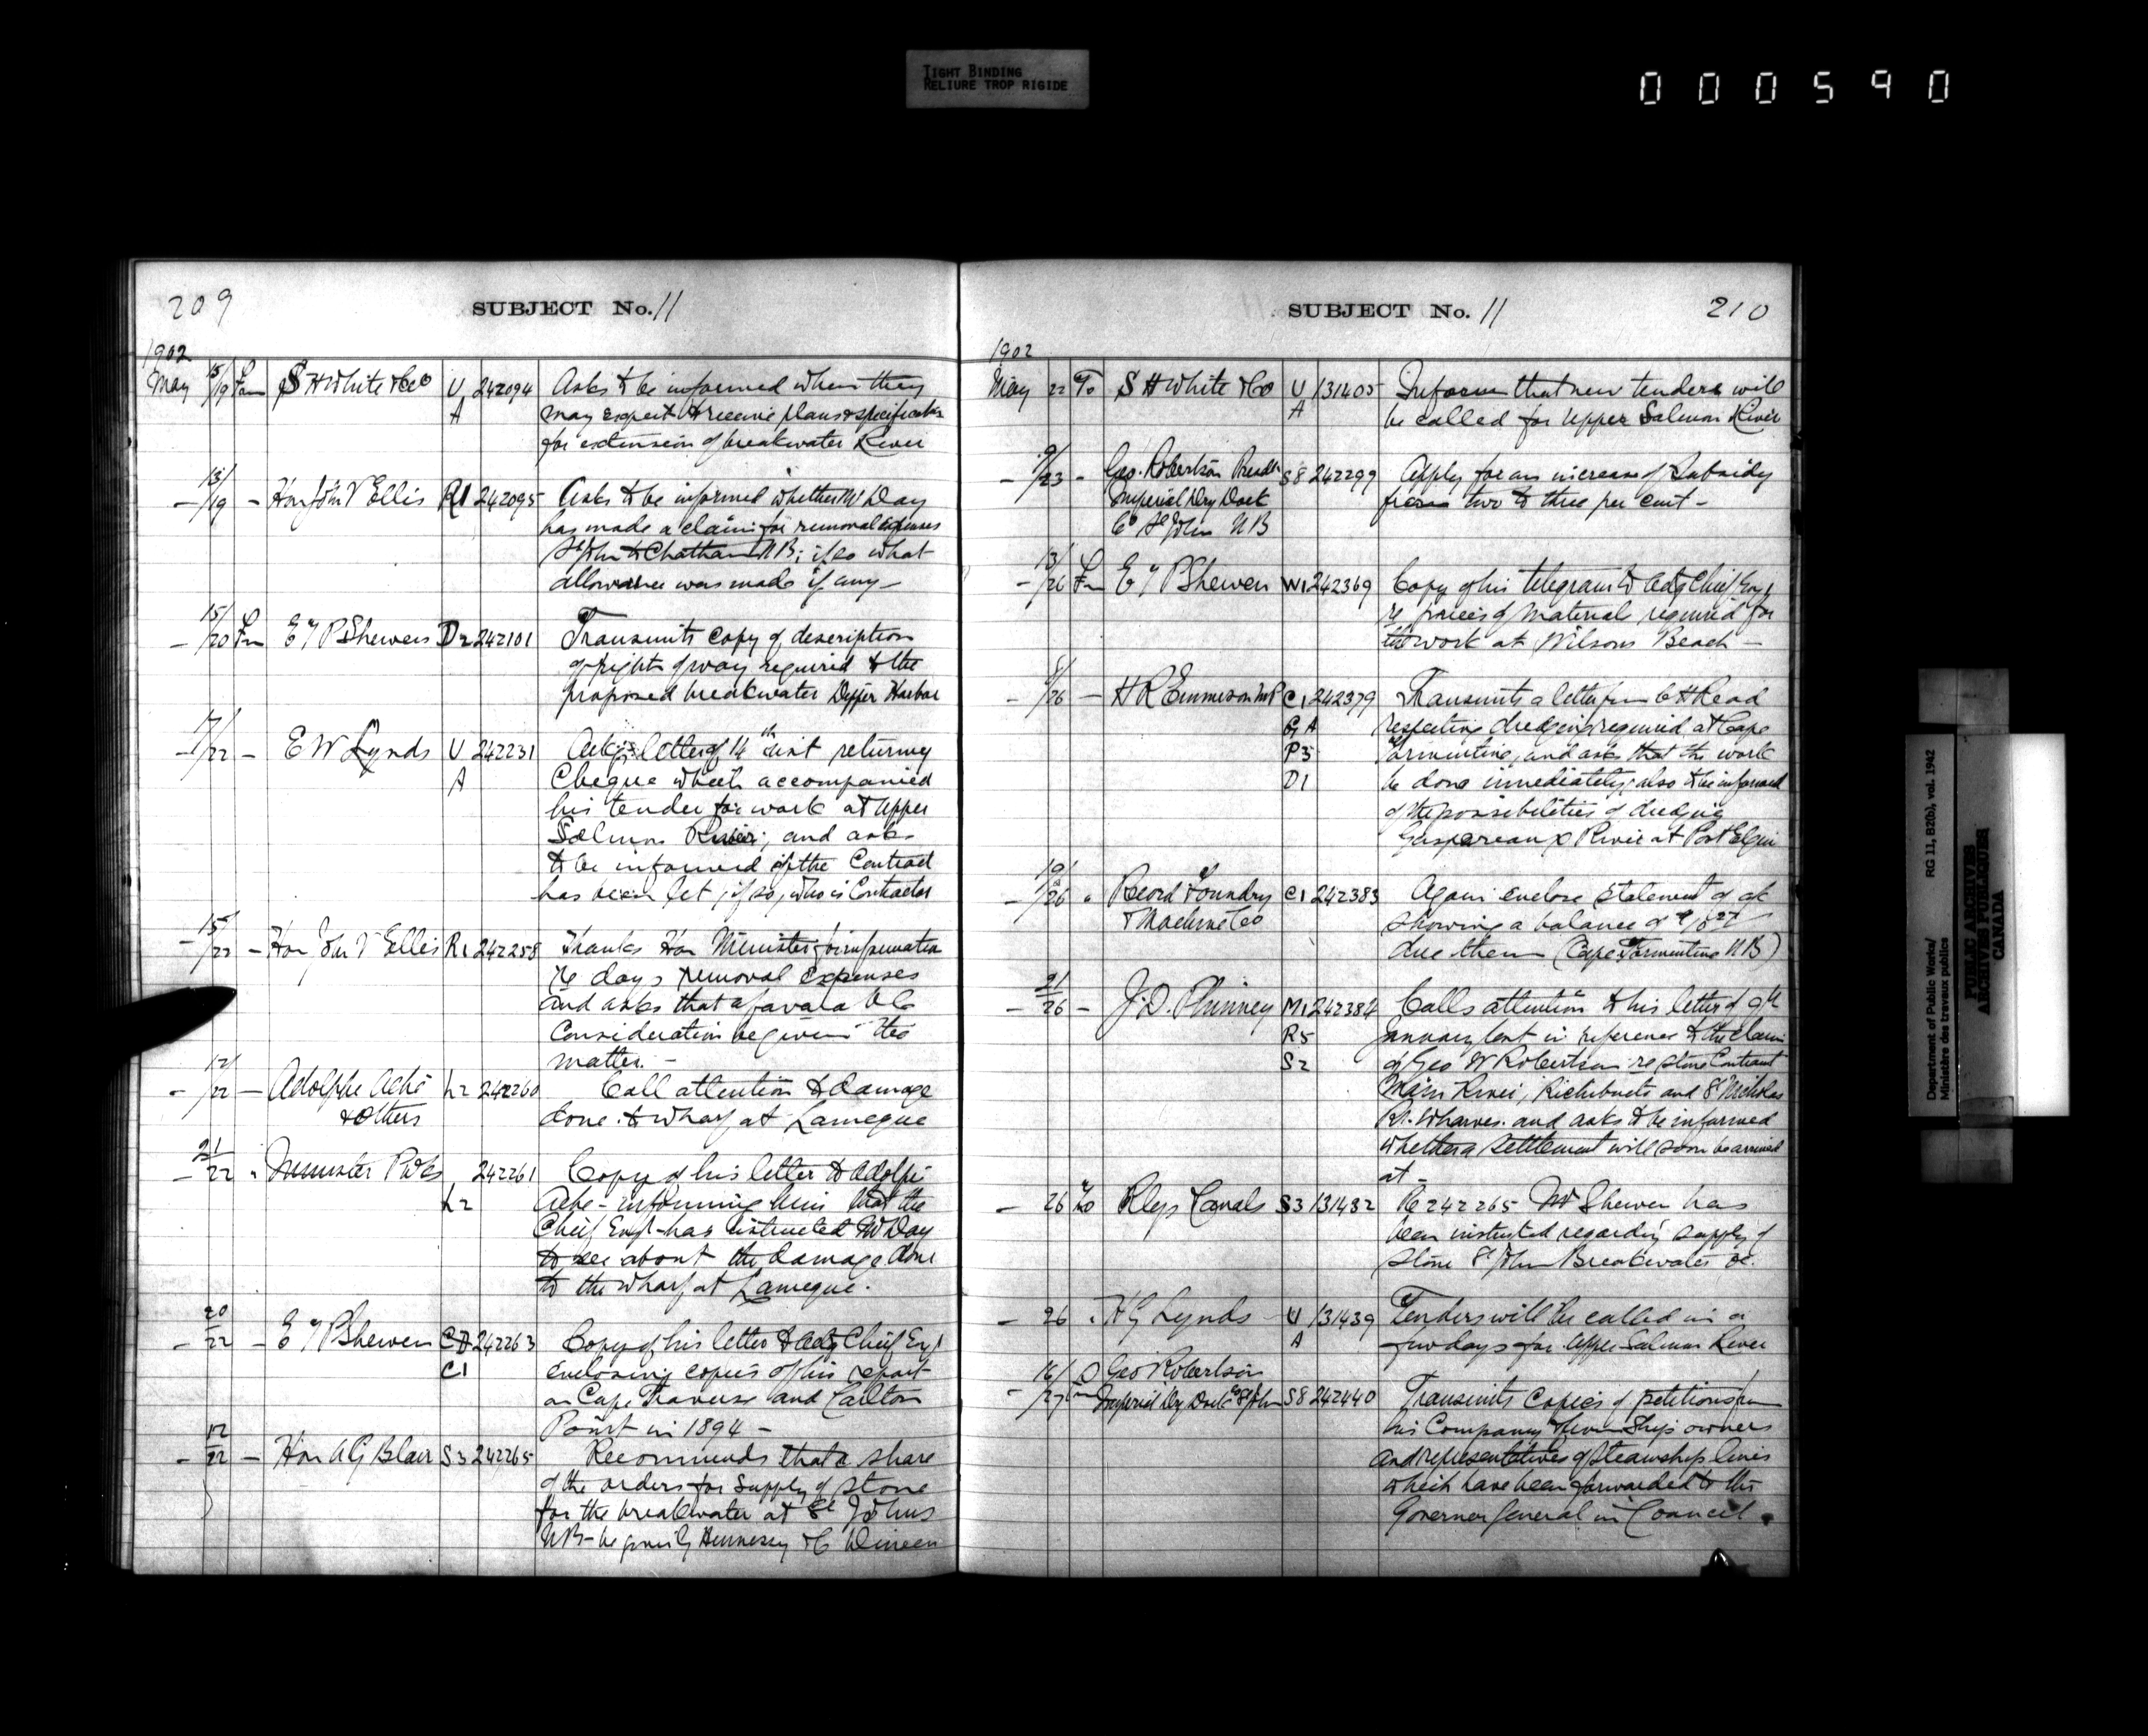 TIGHT BINDING
RELIURE TROP RIGIDE
000590
209
SUBJECT No. 11
1902
May 15/19 Fm S H White & Co U 242094 Asks to be informed when they
A may expect to receive plans & specifications
for extension of breakwater River
— 13/19 — Hon John V Ellis R1 242095 Asks to be informed whether Mr Day
has made a claim for removal expenses
St John to Chatham NB; if so what
allowance was made if any —
— 15/20 Fm E T P Shewen D2 242101 Transmits copy of description
of right of way required to the
proposed breakwater Dipper Harbor
— 17/22 — E W Lynds U 242231 Ackgs letter of 14th inst returning
A Cheque which accompanied
his tender for work at Upper
Salmon River; and asks
to be informed if the Contract
has been let, if so, who is Contractor
— 15/22 — Hon John V Ellis R1 242258 Thanks Hon Minister for information
re days removal expenses
and asks that a favorable
Consideration be given the
matter. —
— 12/22 — Adolphe Aché L2 242260 Call attention to damage
& Others done to wharf at Lameque
— 21/22 " Minister P Wks 242261 Copy of his letter to Adolphe
L2 Aché - informing him that the
Chief Engr - has instructed Mr Day
to see about the damage done
to the wharf at Lameque.
— 20/22 — E T P Shewen 242263 Copy of his letter to Actg Chief Engr
C1 enclosing copies of his report
on Cape Traverse and Carlton
Point in 1894 —
— 12/22 — Hon A G Blair S3 242265 Recommends that a share
of the orders for supply of stone
for the breakwater at St Johns
NB — be given Hennessy & C Dineen
SUBJECT No. 11
210
1902
May 22 To S H White & Co U 131405 Inform that new tenders will
A be called for Upper Salmon River
— 9/23 — Geo. Robertson Presdt S8 242299 Apply for an increase of subsidy
Imperial Dry Dock from two to three per cent —
Co St John NB
— 13/26 Fm E T P Shewen W1 242369 Copy of his telegram to Actg Chief Engr
re prices of material required for
the work at Wilsons Beach —
— 8/26 — H R Emmerson MP C1 242379 Transmits a letter from C H Read
G A respecting dredging required at Cape
P3 Tormentine, and asks that the work
D1 be done immediately; also to be informed
of the possibilities of dredging
Gaspereaux River at Port Elgin
— 19/26 " Record Foundry C1 242383 Again enclose statement of a/c
& Machine Co showing a balance of
due them (Cape Tormentine NB)
— 21/26 — J. D. Phinney M1 242384 Calls attention to his letter of 9th
R5 January last in reference to the claim
S2 of Geo W Robertson re stone Contract
Mains River, Richibucto and St Nicholas
Rr. Wharves. and asks to be informed
whether a settlement will soon be arrived
at —
— 26 To Rlys Canals S3 131432 Re 242265 Mr Shewen has
been instructed regarding supply of
stone St John Breakwater &c.
— 26 " H G Lynds U 131439 Tenders will be called in a
A few days for Upper Salmon River
16/ Geo Robertson
— 27 Fm Imperial Dry Dock Co St John S8 242440 Transmits Copies of petitions from
his Company & from Ship owners
and representatives of steamship lines
which have been forwarded to the
Governor General in Council.
Department of Public Works/ RG 11, B2(b), vol. 1942
Ministère des travaux publics
PUBLIC ARCHIVES
ARCHIVES PUBLIQUES
CANADA